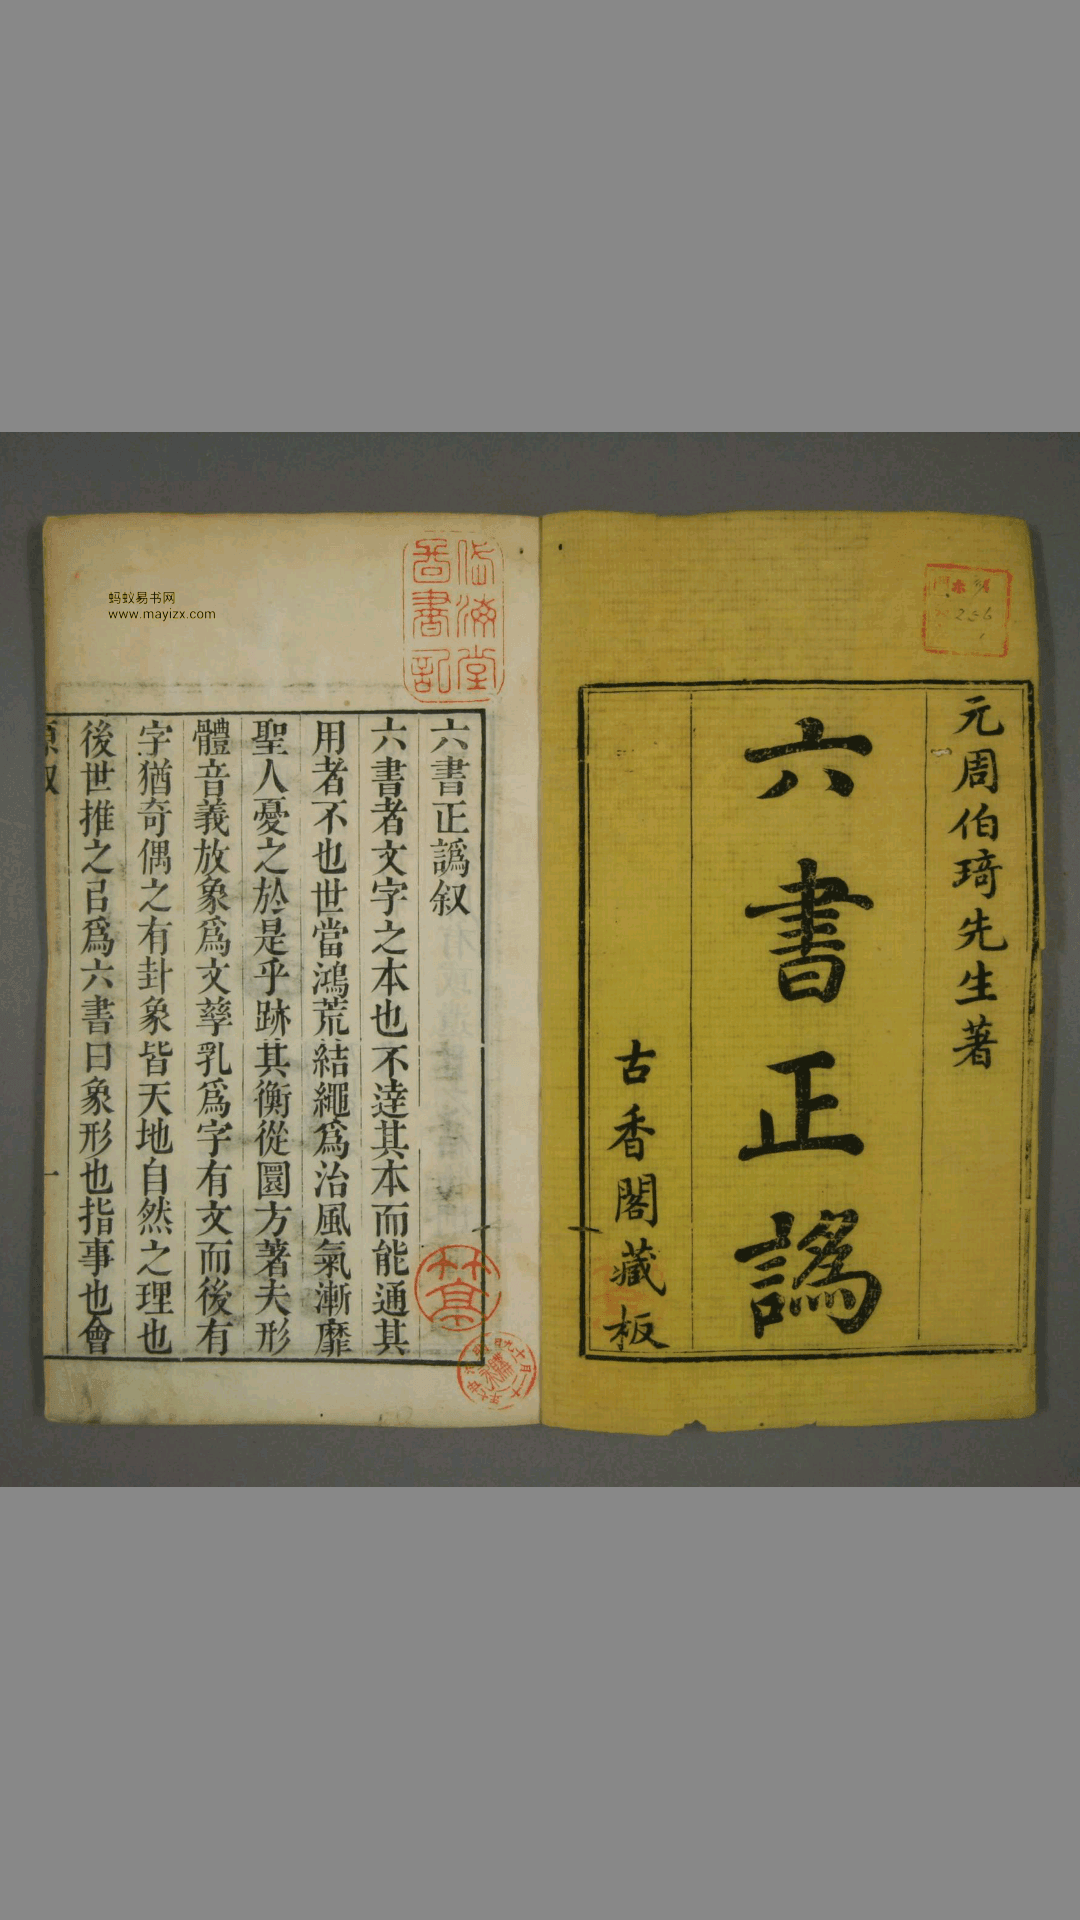 元周伯琦先生著
六書正譌
古香閣藏板
蚂蚁易书网
www.mayizx.com
六書正譌叙
六書者文字之本也不逹其本而能通其
用者不也世當鴻荒結繩爲治風氣漸靡
聖人憂之於是乎跡其衡從圜方著夫形
體音義放象爲文孳乳爲字有文而後有
字猶奇偶之有卦象皆天地自然之理也
後世推之㠯爲六書曰象形也指事也會